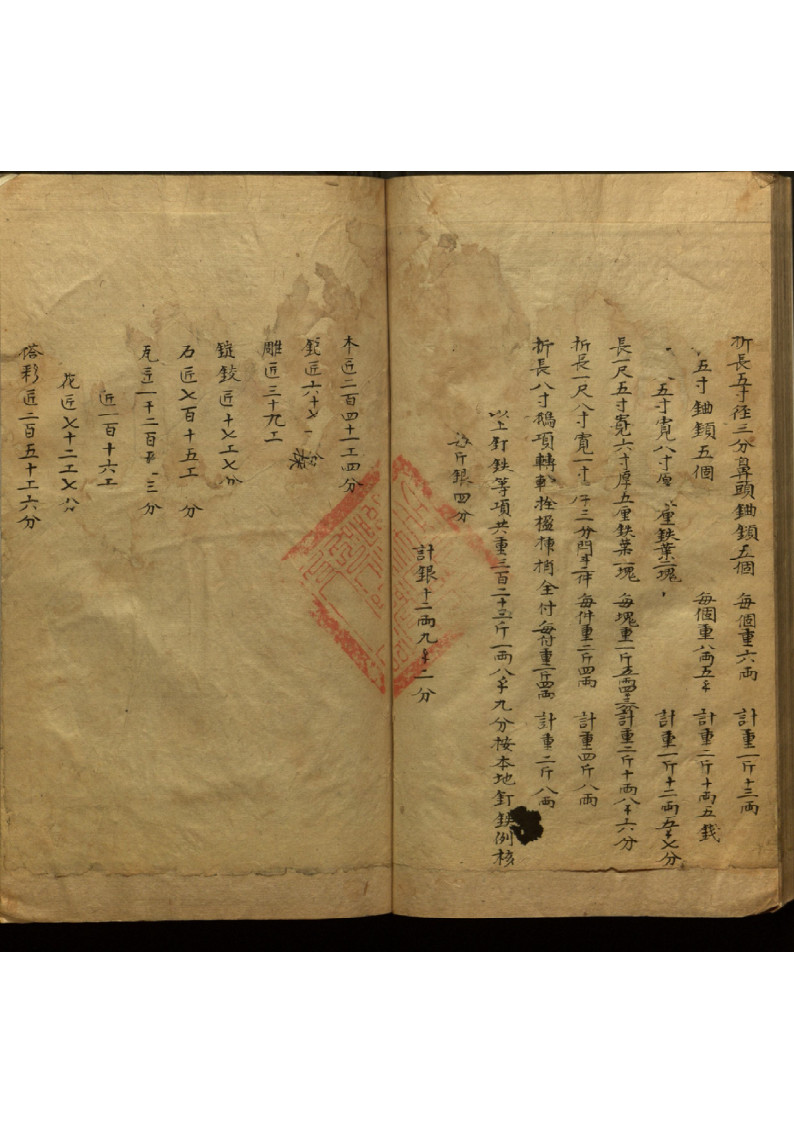 折長五寸徑三分鼻頭鈾鎖五個 每個重六兩 計重一斤十三兩
五寸鈾鎖五個 每個重八兩五㦮 計重二斤十兩五錢
五寸寬八寸厚 釐鉄葉二塊 計重一斤十二兩五㦮七分
長一尺五寸寬六寸厚五厘鉄葉一塊 每塊重一斤五兩四㦮三分 計重二斤十兩八㦮六分
折長一尺八寸寬一寸 三分門 二件 每件重二斤四兩 計重四斤八兩
折長八寸鵝項轉軸拴楹棟梢全付 每付重二斤四兩 計重二斤八兩
以上釘鉄等項共重三百二十三斤一兩八㦮九分按本地釘鉄例核
每斤銀四分
計銀十二兩九㦮二分
木匠二百四十一工四分
鋸匠六十七
雕匠三十九工
錠鉸匠十七工七分
石匠七百十五工 分
瓦匠一千二百 三分
匠一百十六工
花匠七十二工七分
搭彩匠二百五十工六分